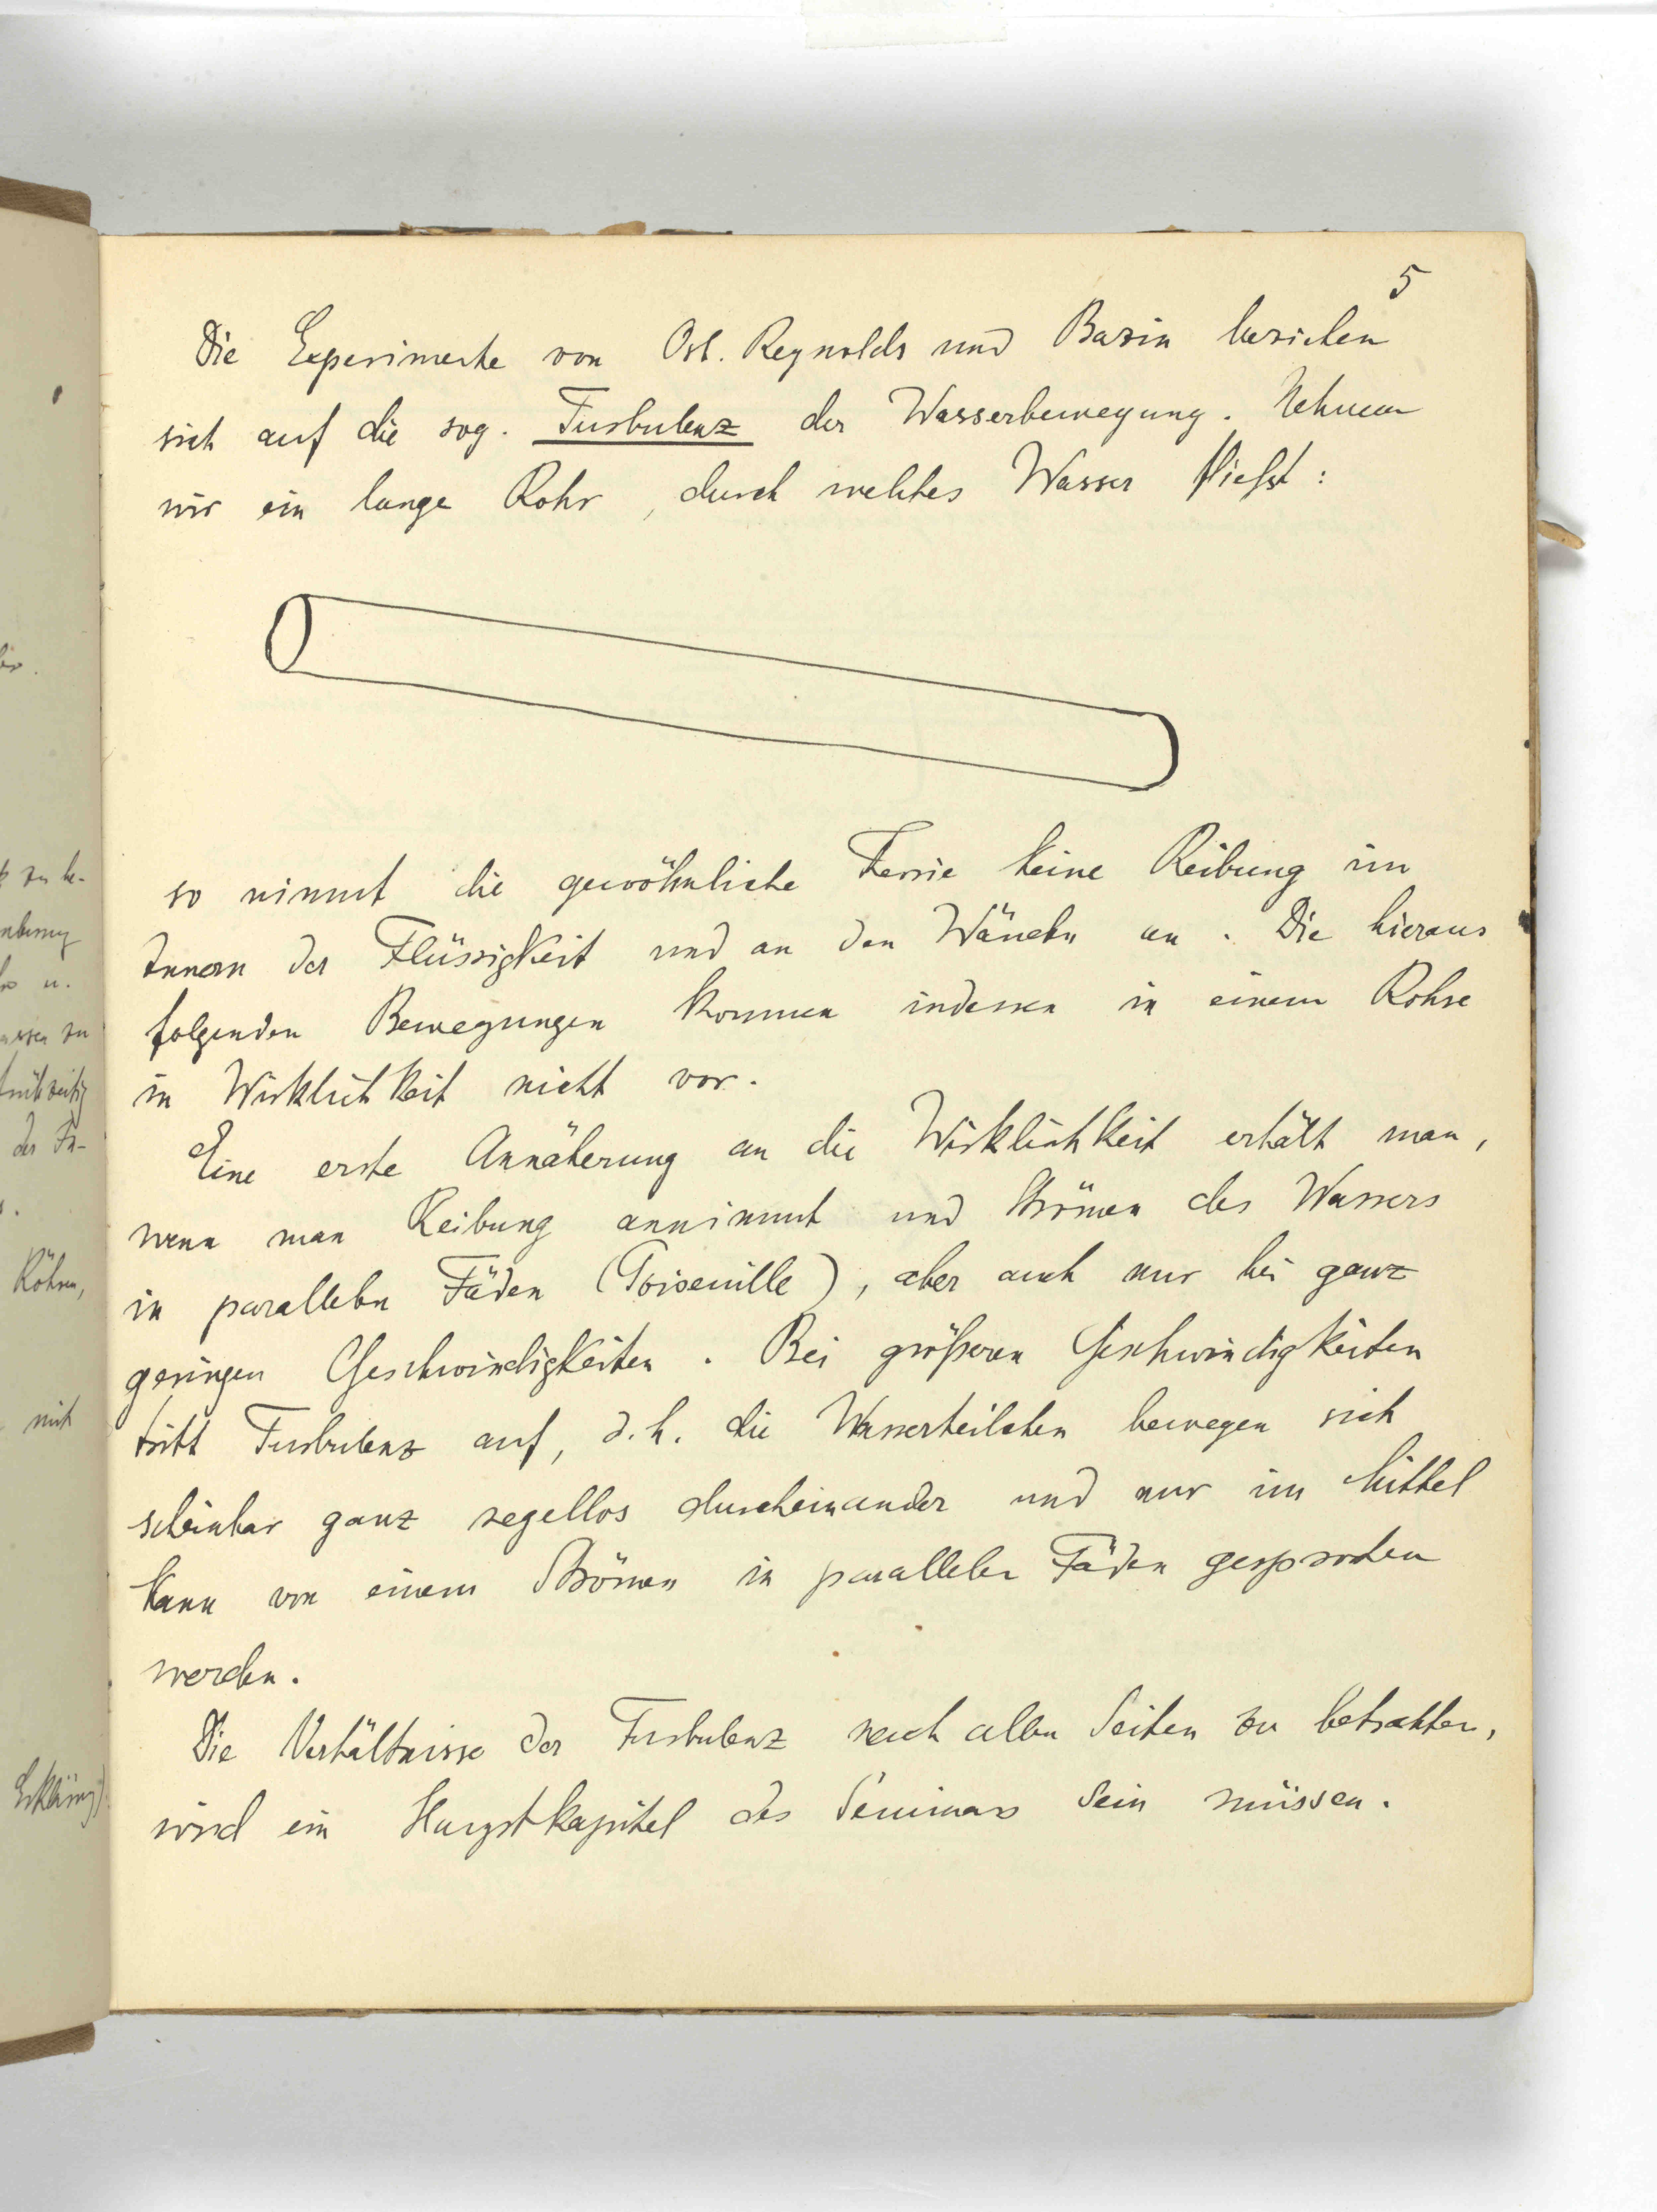 5
Die Experimente von Osb. Reynolds und Bazin beziehen
sich auf die sog. Turbulenz der Wasserbewegung. Nehmen
wir ein lange Rohr, durch welches Wasser fließt:
so nimmt die gewöhnliche Teorie keine Reibung im
Innern der Flüssigkeit und an den Wänden an. Die hieraus
folgenden Bewegungen kommen indessen in einem Rohre
in Wirklichkeit nicht vor.
Eine erste Annäherung an die Wirklichkeit erhält man,
wenn man Reibung annimmt und Strömen des Wassers
in parallelen Fäden (Poiseuille), aber auch nur bei ganz
geringen Geschwindigkeiten. Bei größeren Geschwindigkeiten
tritt Turbulenz auf, d.h. die Wasserteilchen bewegen sich
scheinbar ganz regellos durcheinander und nur im Mittel
kann von einem Strömen in parallelen Fäden gesprochen
werden.
Die Verhältnisse der Turbulenz nach allen Seiten zu betrachten,
wird ein Hauptkapitel des Seminars sein müssen.
zu be-
u.
zu
der
Röhren,
mit